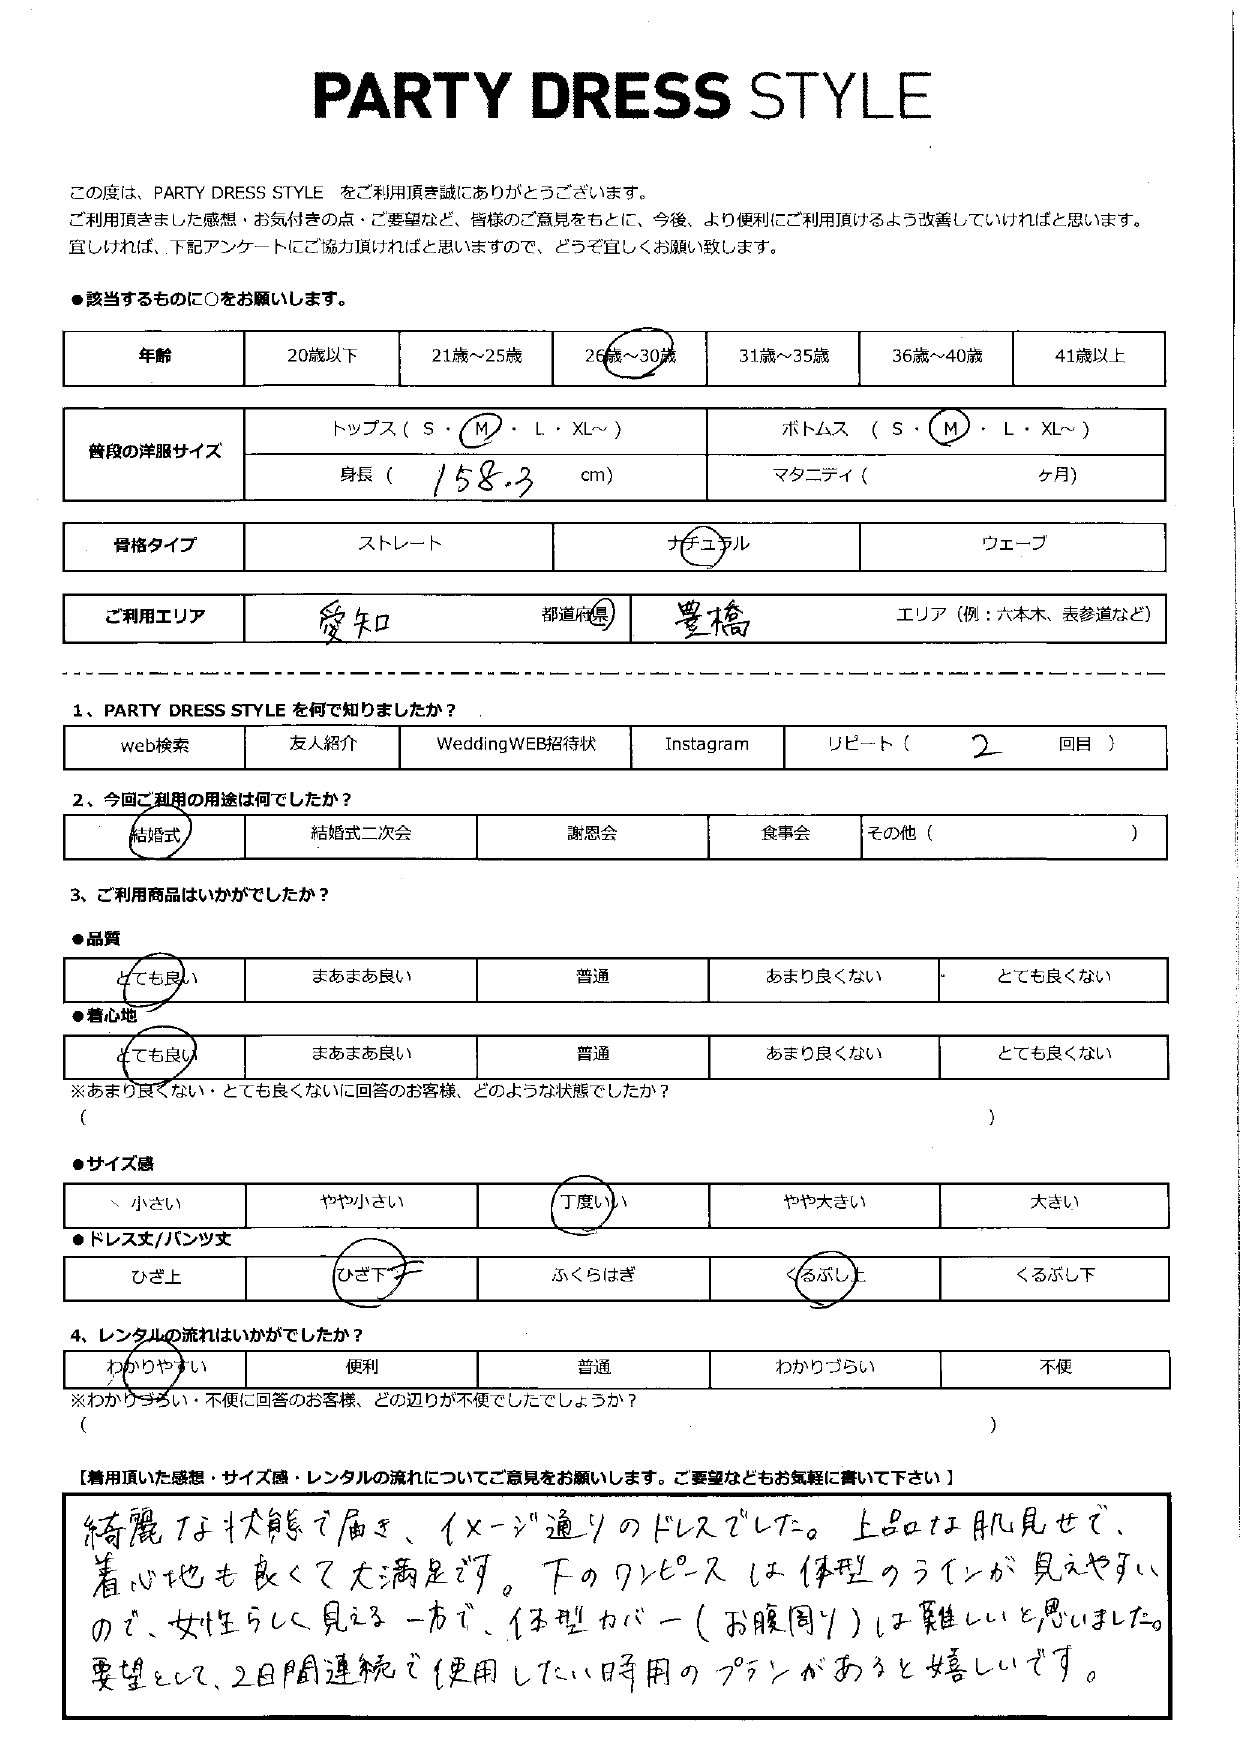 PARTY DRESS STYLE
この度は、PARTY DRESS STYLE　をご利用頂き誠にありがとうございます。
ご利用頂きました感想・お気付きの点・ご要望など、皆様のご意見をもとに、今後、より便利にご利用頂けるよう改善していければと思います。
宜しければ、下記アンケートにご協力頂ければと思いますので、どうぞ宜しくお願い致します。
●該当するものに○をお願いします。
年齢 20歳以下 21歳～25歳 26歳～30歳 31歳～35歳 36歳～40歳 41歳以上
普段の洋服サイズ
トップス（ S ・ M ・ L ・ XL～ ） ボトムス （ S ・ M ・ L ・ XL～ ）
身長（ 158.3 cm） マタニティ（ ヶ月）
骨格タイプ ストレート ナチュラル ウェーブ
ご利用エリア 愛知 都道府県 豊橋 エリア（例：六本木、表参道など）
1、PARTY DRESS STYLE を何で知りましたか？
web検索 友人紹介 WeddingWEB招待状 Instagram リピート（ 2 回目 ）
2、今回ご利用の用途は何でしたか？
結婚式 結婚式二次会 謝恩会 食事会 その他（ ）
3、ご利用商品はいかがでしたか？
●品質
とても良い まあまあ良い 普通 あまり良くない とても良くない
●着心地
とても良い まあまあ良い 普通 あまり良くない とても良くない
※あまり良くない・とても良くないに回答のお客様、どのような状態でしたか？
（ ）
●サイズ感
小さい やや小さい 丁度いい やや大きい 大きい
●ドレス丈/パンツ丈
ひざ上 ひざ下 ふくらはぎ くるぶし上 くるぶし下
4、レンタルの流れはいかがでしたか？
わかりやすい 便利 普通 わかりづらい 不便
※わかりづらい・不便に回答のお客様、どの辺りが不便でしたでしょうか？
（ ）
【着用頂いた感想・サイズ感・レンタルの流れについてご意見をお願いします。ご要望などもお気軽に書いて下さい 】
綺麗な状態で届き、イメージ通りのドレスでした。上品な肌見せで、
着心地も良くて大満足です。下のワンピースは体型のラインが見えやすい
ので、女性らしく見える一方で、体型カバー（お腹周り）は難しいと思いました。
要望として、2日間連続で使用したい時用のプランがあると嬉しいです。